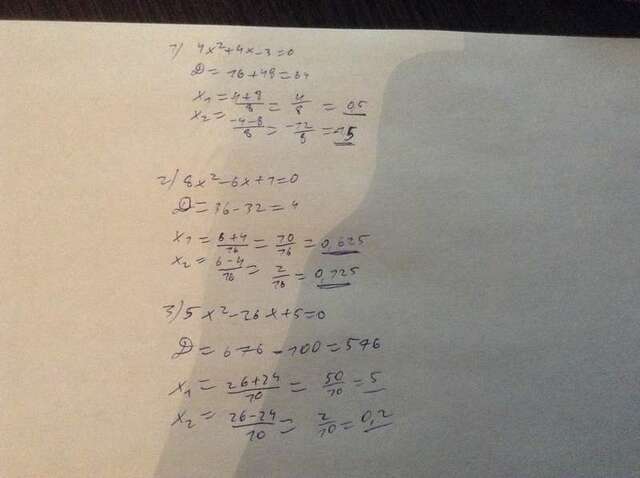 1) 4x²+4x-3=0
D=16+48=64
x₁=4+8/8=4/8=0,5
x₂=-4-8/8=-12/8=-1,5
2) 8x²-6x+1=0
D=36-32=4
x₁=6+4/16=10/16=0,625
x₂=6-4/16=2/16=0,125
3) 5x²-26x+5=0
D=676-100=576
x₁=26+24/10=50/10=5
x₂=26-24/10=2/10=0,2